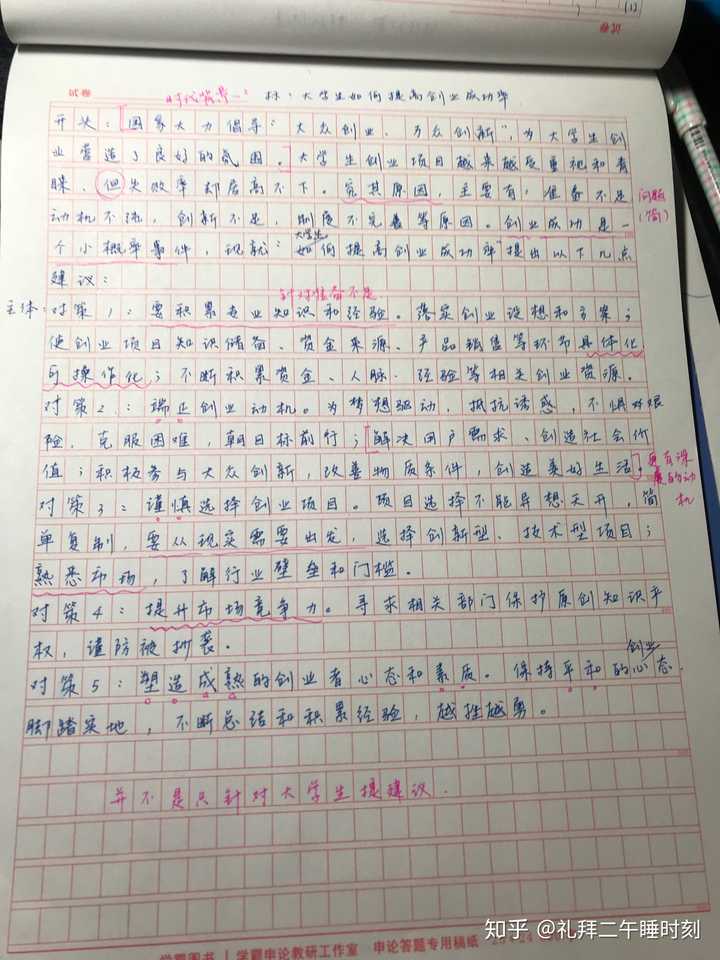 试卷
时代背景一:
标:大学生如何提高创业成功率
开头:[国家大力倡导"大众创业、万众创新",为大学生创
业营造了良好的氛围。]大学生创业项目越来越受重视和青
睐,但失败率却居高不下。究其原因,主要有:准备不足
问题
(简)
动机不纯,创新不足,制度不完善等原因。创业成功是一
大学生
个小概率事件,现就"如何提高创业成功率"提出以下几点
建议:
针对准备不足
主体:对策1:要积累专业知识和经验。落实创业设想和方案;
使创业项目知识储备、资金来源、产品销售等环节具体化
可操作化;不断积累资金、人脉、经验等相关创业资源。
对策2:端正创业动机。为梦想驱动,抵抗诱惑,不惧艰
险,克服困难,朝目标前行;[解决用户需求、创造社会价
值;积极参与大众创新,改善物质条件,创造美好生活]。
更有深
的动
机
对策3:谨慎选择创业项目。项目选择不能异想天开,简
单复制,要从现实需要出发,选择创新型、技术型项目;
熟悉市场,了解行业壁垒和门槛。
对策4:提升市场竞争力。寻求相关部门保护原创知识产
权,谨防被抄袭。
创业
对策5:塑造成熟的创业者心态和素质。保持平和的心态,
脚踏实地,不断总结和积累经验,越挫越勇。
并不是只针对大学生提建议.
学霸图书 | 学霸申论教研工作室 申论答题专用稿纸
知乎 @礼拜二午睡时刻